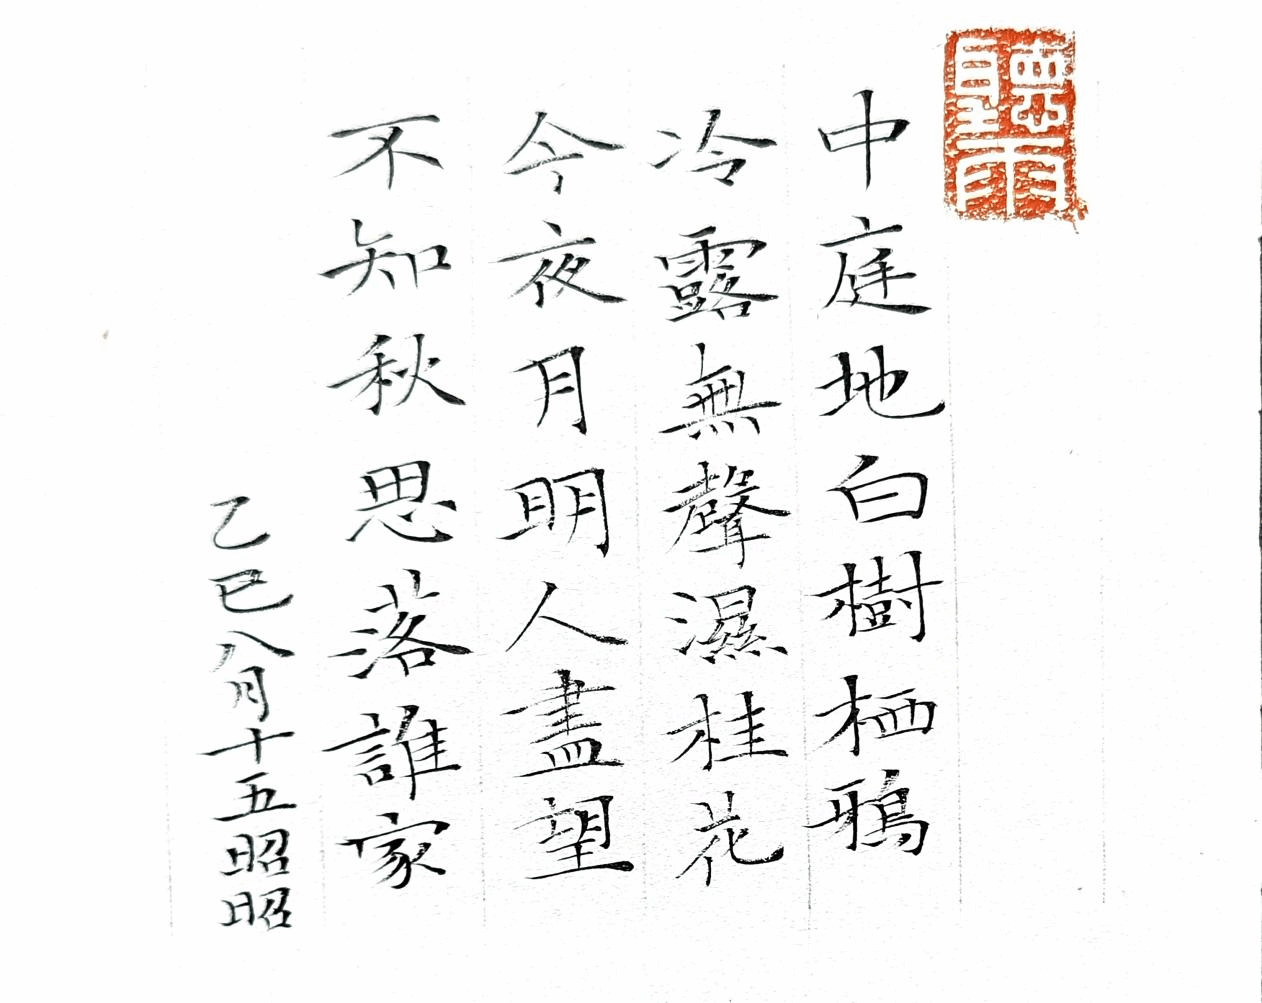 聽雨
中庭地白樹栖鴉
冷露無聲濕桂花
今夜月明人盡望
不知秋思落誰家
乙巳八月十五昭昭